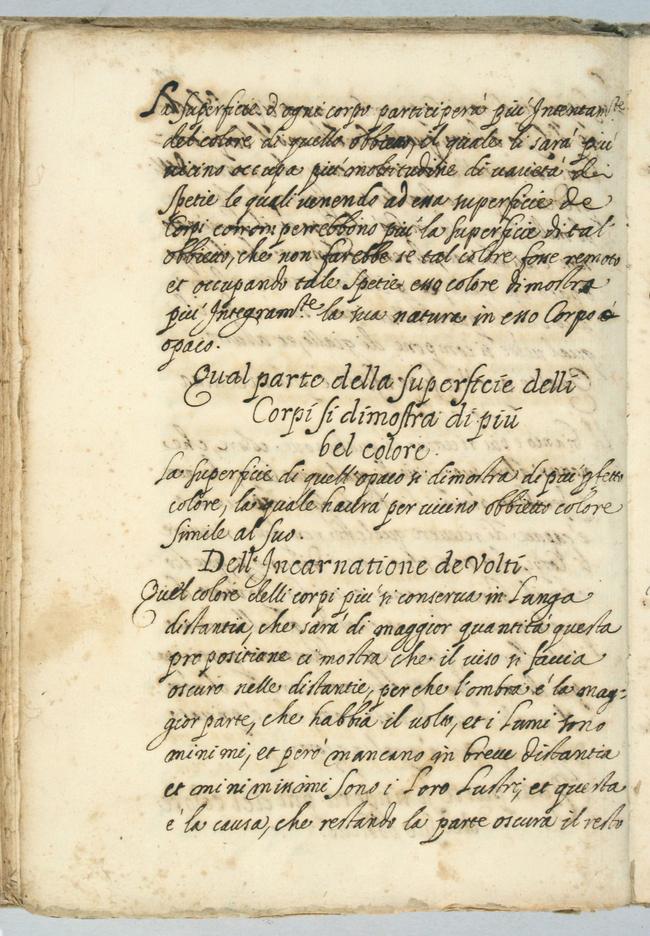 La superficie d ogni corpo participerà più Intentamte
del colore di quello obbietto, il quale li sarà più
vicino occupa più moltitudine di varietà di
spetie le quali venendo ad essa superficie de
Corpi corromperebbono più la superficie di tal
obbietto, che non farebbe se tal colore fosse remoto
et occupando tale spetie esso colore dimostra
più Integramte la sua natura in esso Corpo
opaco.
Qual parte della superficie delli
Corpi si dimostra di più
bel colore.
La superficie di quell' opaco si dimostra di più pfetto
colore, la quale haurà per vicino obbietto colore
simile al suo.
Dell' Incarnatione de Volti.
Quel colore delli corpi più si conserva in Lunga
distantia, che sarà di maggior quantità questa
propositione ci mostra che il viso si faccia
oscuro nelle distantie, perche l'ombra é la mag=
gior parte, che habbia il volto, et i Lumi sono
minimi, et però mancano in breve distantia
et minimissimi sono i Loro Lustri, et questa
é la causa, che restando la parte oscura il resto